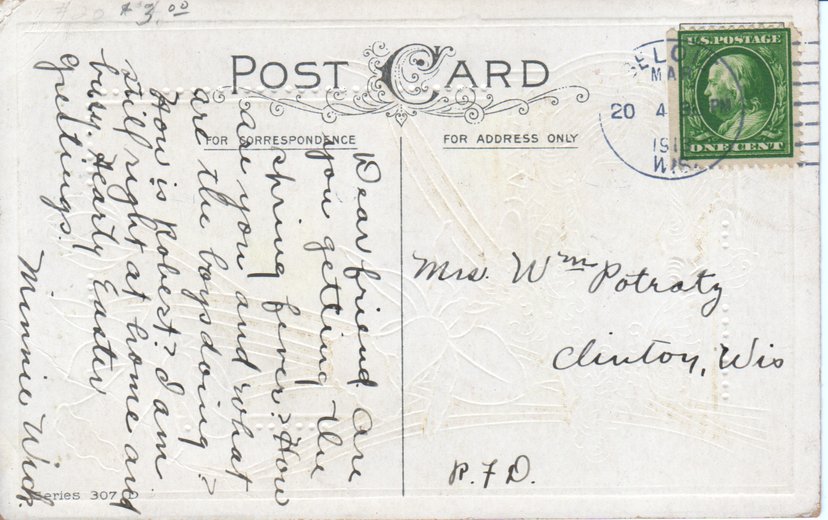 $3.00
POST CARD
FOR CORRESPONDENCE
FOR ADDRESS ONLY
U.S. POSTAGE
ONE CENT
MAR
20
4
PM
191
WIS
Dear friend. Are
you getting the
spring fever? How
are you and what
are the boys doing?
How is Robert? I am
still right at home and
busy. Hearty Easter
greetings!
Minnie Wick
Mrs. Wm Potratz
Clinton, Wis
R. F. D.
Series 307 D